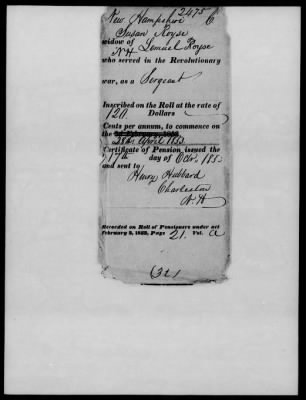 New Hampshire 2475 C
Susan Royse
widow of Lemuel Royse
N H
who served in the Revolutionary
war, as a Sergeant
Inscribed on the Roll at the rate of
120 Dollars
Cents per annum, to commence on
the
28th April 1853
Certificate of Pension issued the
17th day of Octr. 185
and sent to
Henry Hubbard
Charleston
N. H
Recorded on Roll of Pensioners under act
February 3, 1853, Page 21. Vol. A
(32)